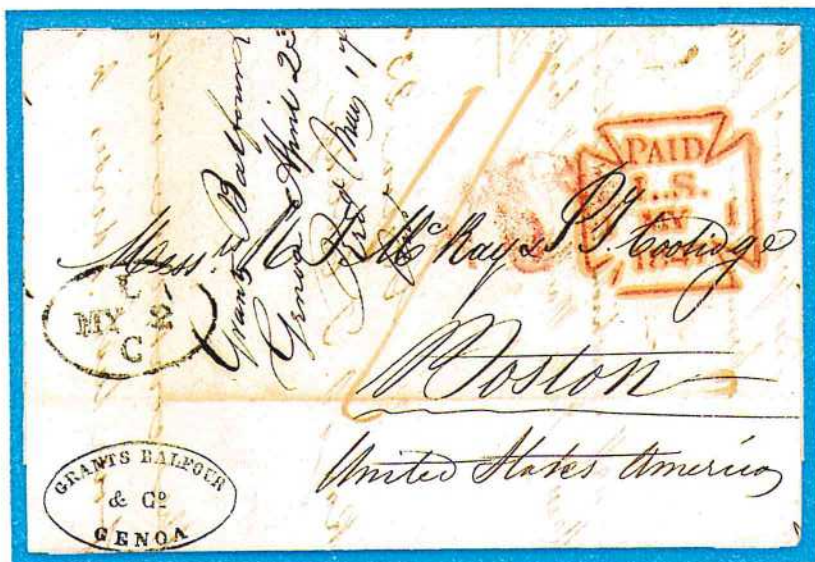 Grants Balfour
Genoa April 23
Recd May 17
PAID
L.S.
MY 1
184
Messrs. R. S. McKay & P. J. Coolidge
L
MY 2
C
Boston
United States America
GRANTS BALFOUR
& Co
GENOA